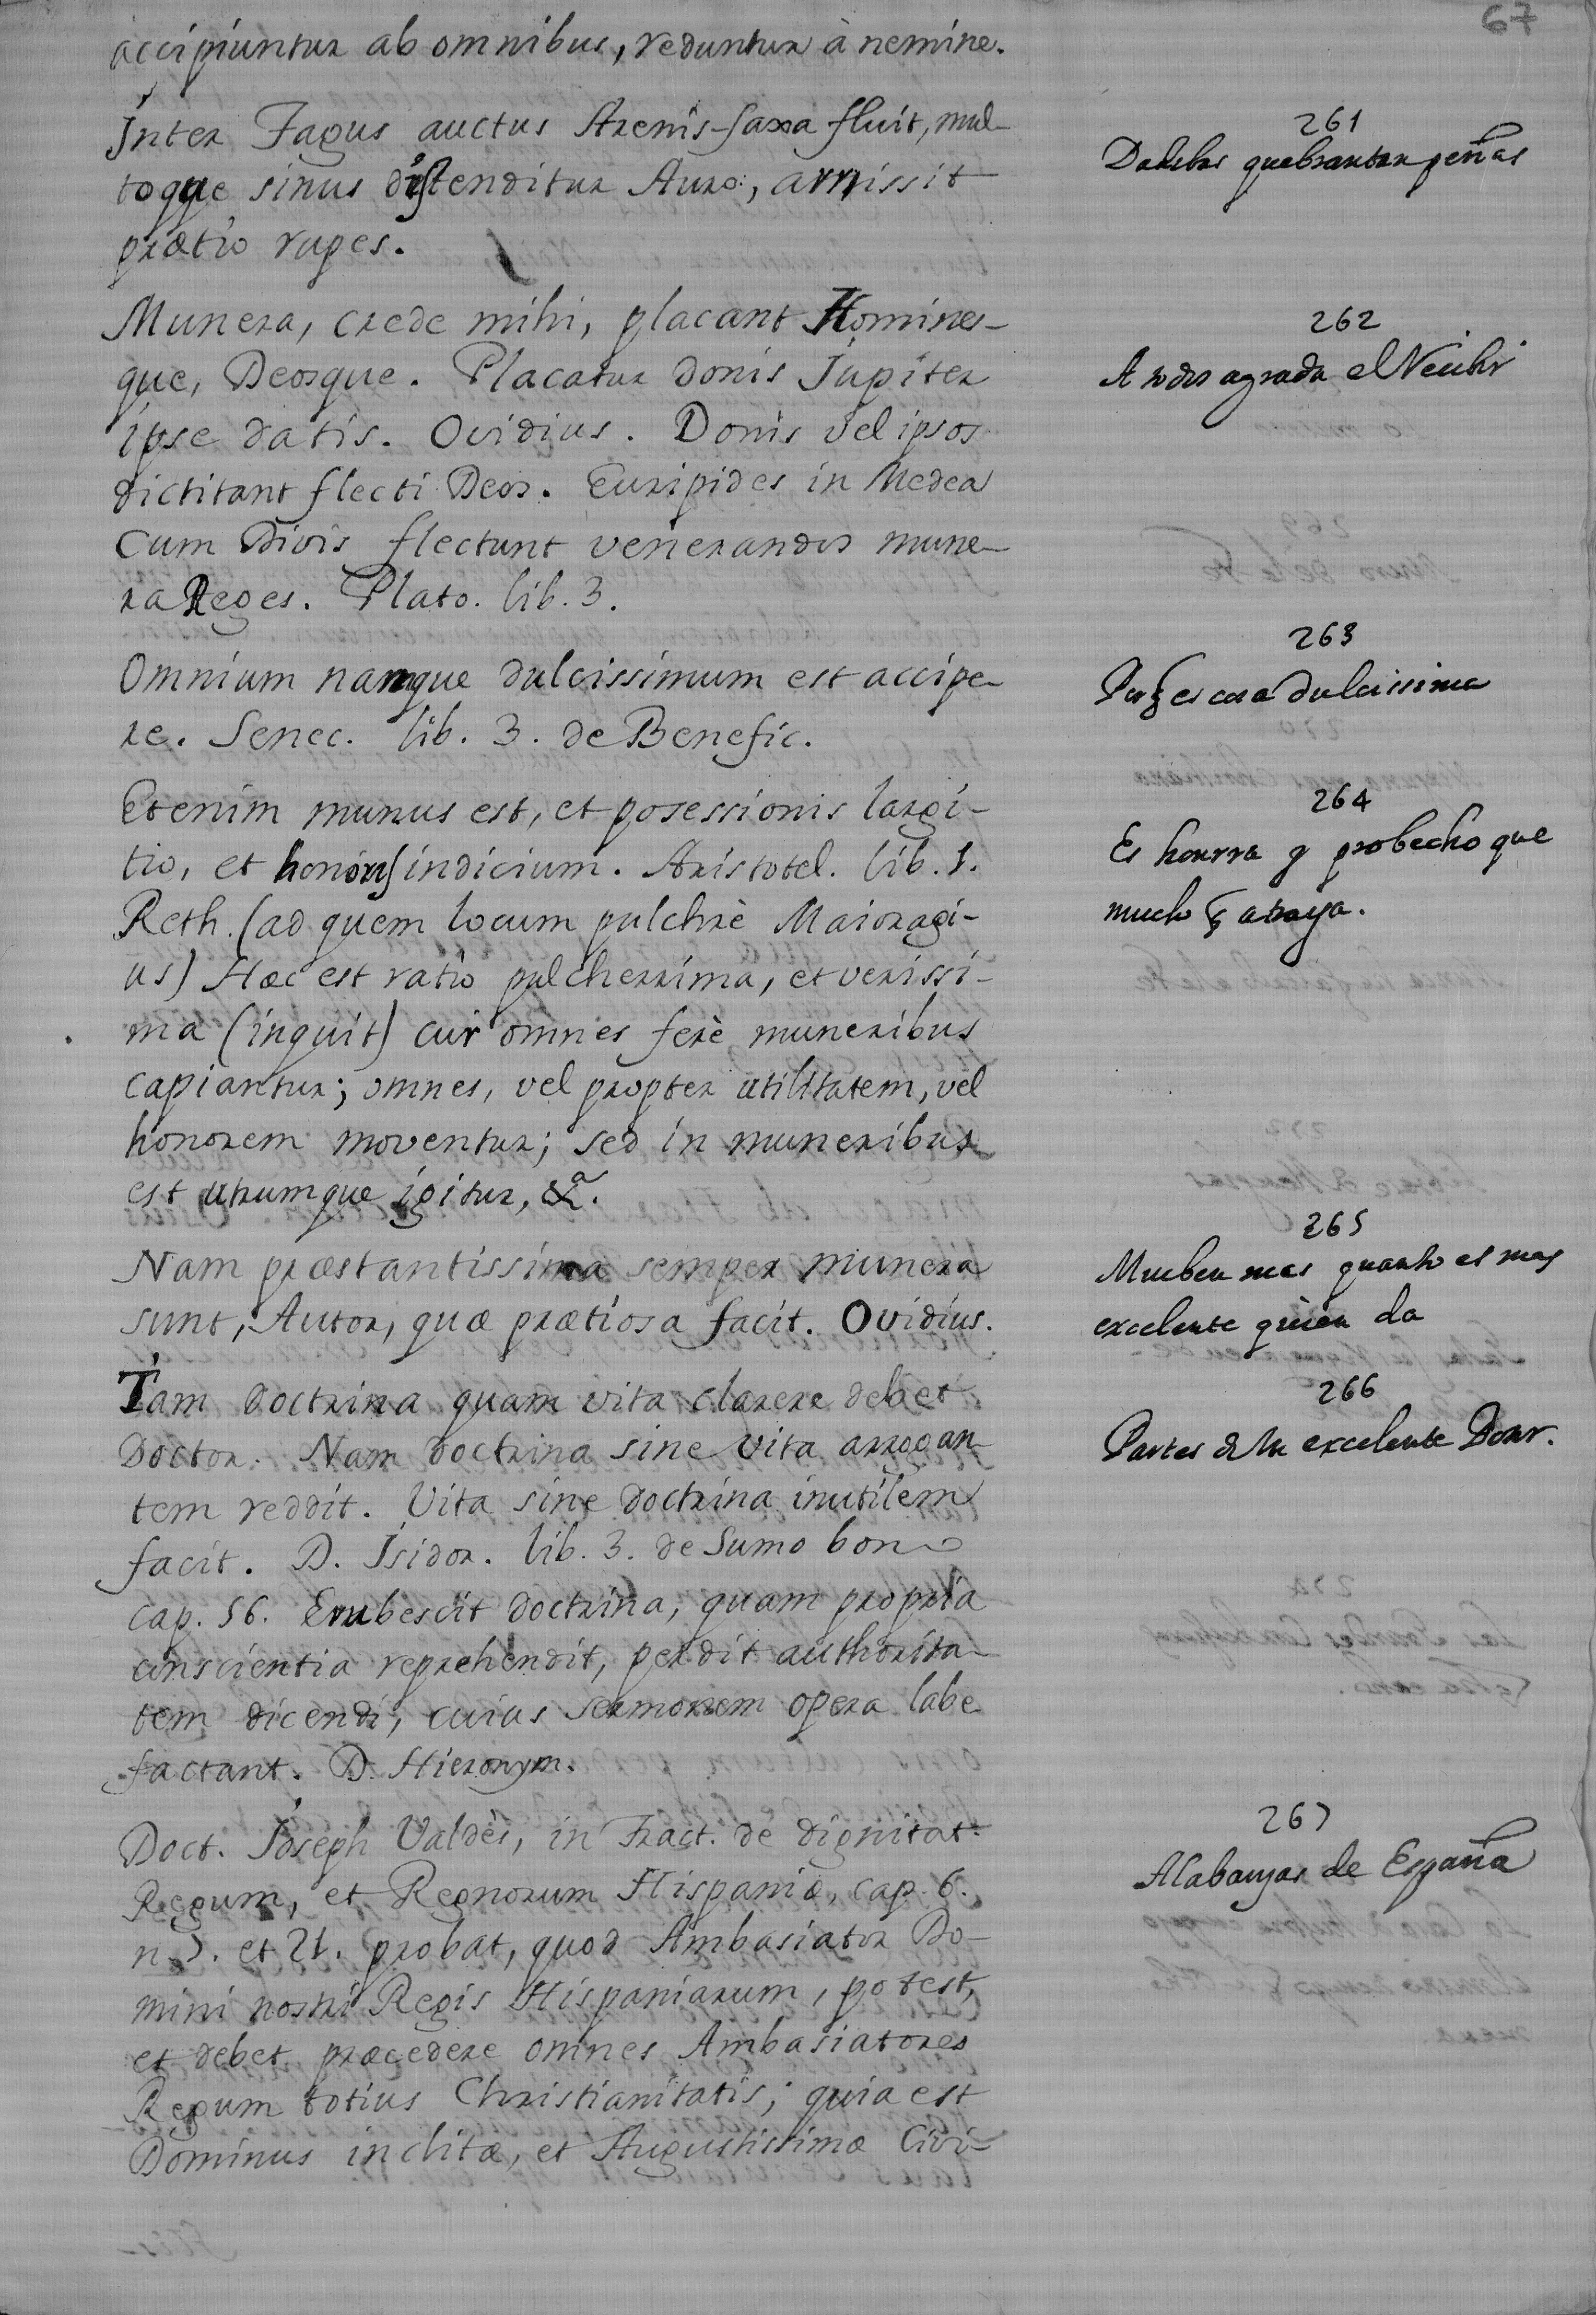 67
accipiuntur ab omnibus, reduntur à nemine.
Inter Tagus auctus Arenis saxa fluit, mul-
toque sinus distenditur Auro, amissit
prætio rupes.
261
Dadibas quebrantan peñas
Munera, crede mihi, placant Homines-
que, Deosque. Placatur donis Jupiter
ipse datis. Ovidius. Donis vel ipsos
dictitant flecti Deos. Euripides in Medea
Cum Divis flectunt venerandos mune-
ra Reges. Plato. lib. 3.
262
A todos agrada el Recibir
Omnium namque dulcissimum est accipe-
re. Senec. lib. 3. de Benefic.
263
Porq̃ es cosa dulcissima
Etenim munus est, et posessionis largi-
tio, et honoris indicium. Aristotel. lib. 1.
Reth. (ad quem locum pulchrè Maioragi-
us) Hæc est ratio pulcherrima, et verissi-
ma (inquit) cur omnes ferè muneribus
capiantur; omnes, vel propter utilitatem, vel
honorem moventur; sed in muneribus
est utrumque igitur, &a.
264
Es honrra y probecho que
mucho q̃ atraya.
Nam præstantissima semper munera
sunt, Autor, quæ prætiosa facit. Ovidius.
265
Mueben mas quanto es mas
excelente quien da
Tam doctrina quam vita clarere debet
Doctor. Nam doctrina sine vita arrogan-
tem reddit. Vita sine doctrina inutilem
facit. D. Isidor. lib. 3. de Sumo bono
cap. 56. Erubescit doctrina, quam propria
conscientia reprehendit, perdit authorita-
tem dicendi, cuius sermonem opera labe
factant. D. Hieronym.
266
Partes de un excelente Doctor.
Doct. Joseph Valdès, in Tract. de dignitat.
Regum, et Regnorum Hispaniæ, cap. 6.
n. 7. et 21. probat, quod Ambasiator Do-
mini nostri Regis Hispaniarum, potest,
et debet præcedere omnes Ambasiatores
Regum totius Christianitatis; quia est
Dominus inclitæ, et Augustissimæ Civi-
267
Alabanzas de España